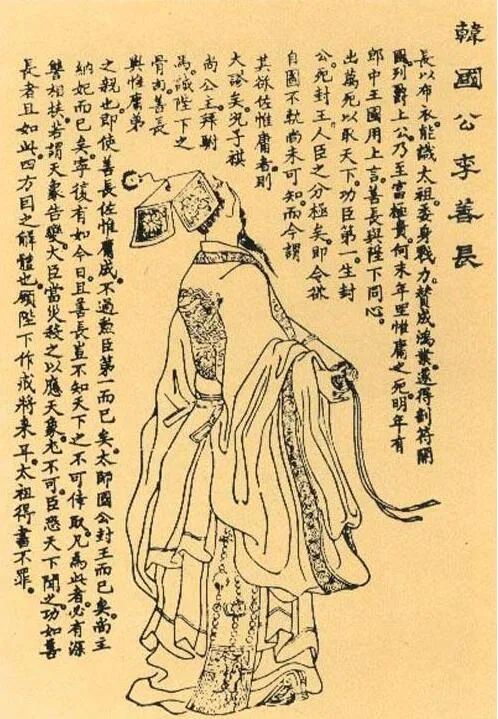 韓國公李善長
長以布衣能識太祖。委身戮力。贊成鴻業。遂得剖符開
國。列爵上公。乃至富極貴。何末年坐惟庸之死。明年有
郎中王國用上言。善長與陛下同心。
出萬死以取天下。功臣第一。生封
公。死封王。人臣之分極矣。即令欲
自圖不軌。尚未可知。而今謂
其欲佐惟庸者。則
大謬矣。兄子祺
尚公主。拜駙
馬。誠陛下之
骨肉。善長
與惟庸。弟
之親也。即使善長佐惟庸成。不過勳臣第一而已矣。太師國公封王而已矣。尚主
納妃而已矣。寧復有如今日。且善長豈不知天下之不可倖取。凡為此者。必有深
讐相挾。若謂天象告變。大臣當災。殺之以應天象。尤不可。臣恐天下聞之。功如善
長者且如此。四方因之解體也。願陛下作戒將來耳。太祖得書不罪。